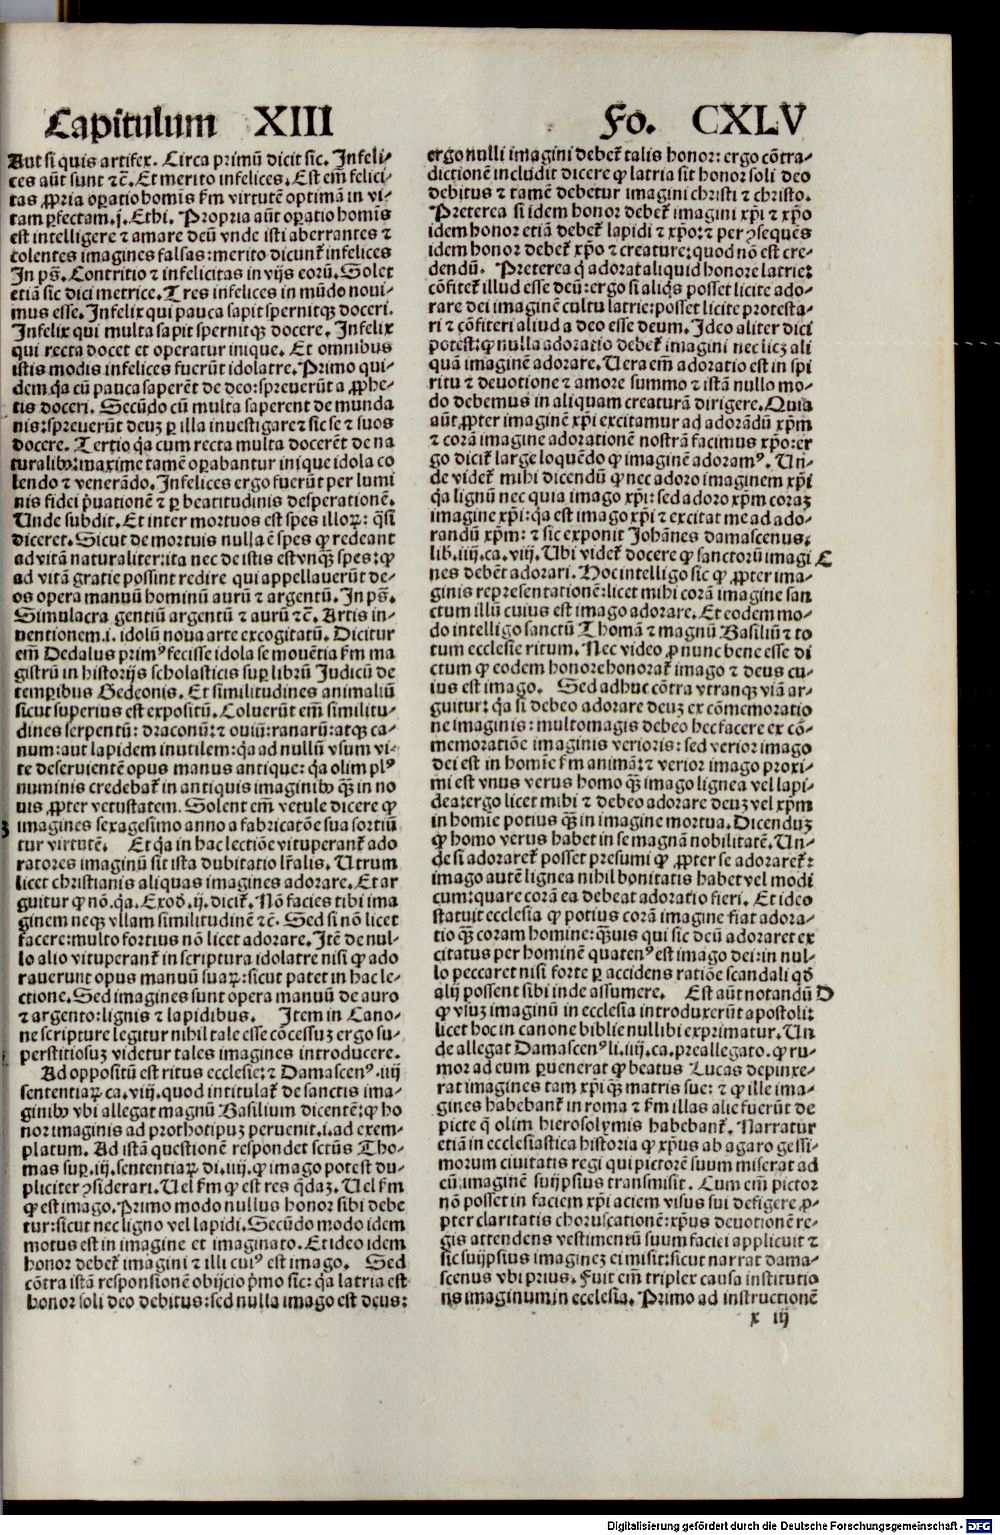 Capitulum XIII
Fo. CXLV
Aut si quis artifex. Circa primū dicit sic. Infeli-
ces aūt sunt ⁊c̄. Et merito infelices. Est em̄ felici-
tas ꝓpria oꝑatio homīs ẜm virtutē optimā in vi-
tam ꝑfectam .j. Ethi. Propria aūt oꝑatio homīs
est intelligere ⁊ amare deū vnde isti aberrantes ⁊
colentes imagines falsas: merito dicunt᷑ infelices
In pš. Contritio ⁊ infelicitas in vijs eorū. Solet
etiā sic dici metrice. Tres infelices in mūdo noui-
mus esse. Infelix qui pauca sapit spernitqꝫ doceri.
Infelix qui multa sapit spernitqꝫ docere. Infelix
qui recta docet et operatur inique. Et omnibus
istis modis infelices fuerūt idolatre. Primo qui-
dem q̇a cū pauca saperēt de deo: spreuerūt a ꝓphe-
tis doceri. Secūdo cū multa saperent de munda
nis: spreuerūt deuꝫ ꝑ illa inuestigare ⁊ sic se ⁊ suos
docere. Tertio q̇a cum recta multa docerēt de na
turalibꝰ: maxime tamē oꝑabantur inique idola co
lendo ⁊ venerādo. Infelices ergo fuerūt per lumi
nis fidei p̄uationē ⁊ ꝑ beatitudinis desperationē.
Unde subdit. Et inter mortuos est spes illoꝝ: q̄si
diceret. Sicut de mortuis nulla ē spes ꝙ redeant
ad vitā naturaliter: ita nec de istis est vnqꝫ spes: ꝙ
ad vitā gratie possint redire qui appellauerūt de-
os opera manuū hominū aurū ⁊ argentū. In pš.
Simulacra gentiū argentū ⁊ aurū ⁊c̄. Artis in-
uentionem .i. idolū noua arte excogitatū. Dicitur
em̄ Dedalus primꝰ fecisse idola se mouētia ẜm ma
gistrū in historijs scholasticis suꝑ librū Judicū de
temꝑibus Gedeonis. Et similitudines animaliū
sicut superius est expositū. Coluerūt em̄ similitu-
dines serpentū: draconū: ⁊ ouiū: ranarū: atqꝫ ca-
num: aut lapidem inutilem: q̇a ad nullū vsum vi-
te deseruientē opus manus antique: q̇a olim plꝰ
numinis credebat᷑ in antiquis imaginibꝰ qꝫ̄ in no
uis ꝓpter vetustatem. Solent em̄ vetule dicere ꝙ
imagines sexagesimo anno a fabricatōe sua sortiū
tur virtutē. Et q̇a in hac lectiōe vituperant᷑ ado
ratores imaginū sit ista dubitatio lr̄alis. Utrum
licet christianis aliquas imagines adorare. Et ar
guitur ꝙ nō. q̇a. Exoď. ij. dicit᷑. Nō facies tibi ima
ginem neqꝫ vllam similitudinē ⁊c̄. Sed si nō licet
facere: multo fortius nō licet adorare. Itē de nul-
lo alio vituperant᷑ in scriptura idolatre nisi ꝙ ado
rauerunt opus manuū suaꝝ: sicut patet in hac le-
ctione. Sed imagines sunt opera manuū de auro
⁊ argento: lignis ⁊ lapidibus. Item in Cano-
ne scripture legitur nihil tale esse cōcessuꝫ ergo su-
perstitiosuꝫ videtur tales imagines introducere.
Ad oppositū est ritus ecclesie: ⁊ Damascenꝰ .iiij
sententiaꝝ ca. viij. quod intitulat᷑ de sanctis ima-
ginibꝰ vbi allegat magnū Basilium dicentē: ꝙ ho
nor imaginis ad prothotipuꝫ peruenit .i. ad exem-
platum. Ad istā questionē respondet sctūs Tho-
mas suꝑ .iij. sententiaꝝ di. iiij. ꝙ imago potest du-
pliciter ꝯsiderari. Uel ẜm ꝙ est res q̄daꝫ. Uel ẜm
ꝙ est imago. Primo modo nullus honor sibi debe
tur: sicut nec ligno vel lapidi. Secūdo modo idem
motus est in imagine et imaginato. Et ideo idem
honor debet᷑ imagini ⁊ illi cuiꝰ est imago. Sed
cōtra istā responsionē obijcio pͥmo sic: q̇a latria est
honor soli deo debitus: sed nulla imago est deus:
ergo nulli imagini debet᷑ talis honor: ergo cōtra-
dictionē includit dicere ꝙ latria sit honor soli deo
debitus ⁊ tamē debetur imagini christi ⁊ christo.
Preterea si idem honor debet᷑ imagini xp̄i ⁊ xp̄o
idem honor etiā debet᷑ lapidi ⁊ xp̄o: ⁊ per ꝯsequēs
idem honor debet᷑ xp̄o ⁊ creature: quod nō est cre-
dendū. Preterea q̇ adorat aliquid honore latrie:
cōfitet᷑ illud esse deū: ergo si aliq̇s posset licite ado-
rare dei imaginē cultu latrie: posset licite protesta-
ri ⁊ cōfiteri aliud a deo esse deum. Ideo aliter dici
potest: ꝙ nulla adoratio debet᷑ imagini nec licꝫ ali
quā imaginē adorare. Uera em̄ adoratio est in spi
ritu ⁊ deuotione ⁊ amore summo ⁊ istā nullo mo-
do debemus in aliquam creaturā dirigere. Quia
aūt ꝓpter imaginē xp̄i excitamur ad adorādū xp̄m
⁊ corā imagine adorationē nostrā facimus xp̄o: er
go dicit᷑ large loquēdo ꝙ imaginē adoramꝰ. Un-
de videt᷑ mihi dicendū ꝙ nec adoro imaginem xp̄i
q̇a lignū nec quia imago xp̄i: sed adoro xp̄m coraꝫ
imagine xp̄i: q̇a est imago xp̄i ⁊ excitat me ad ado-
randū xp̄m: ⁊ sic exponit Johānes damascenus.
lib. iiij. ca. viij. Ubi videt᷑ docere ꝙ sanctorū imagi C
nes debēt adorari. Hoc intelligo sic ꝙ ꝓpter ima-
ginis representationē: licet mihi corā imagine san
ctum illū cuius est imago adorare. Et eodem mo-
do intelligo sanctū Thomā ⁊ magnū Basiliū ⁊ to
tum ecclesie ritum. Nec video ꝓ nunc bene esse di
ctum ꝙ eodem honore honorat᷑ imago ⁊ deus cu-
ius est imago. Sed adhuc cōtra vtranqꝫ viā ar-
guitur: q̇a si debeo adorare deuꝫ ex cōmemoratio
ne imaginis: multomagis debeo hec facere ex cō-
memoratiōe imaginis verioris: sed verior imago
dei est in homīe ẜm animā: ⁊ verior imago proxi-
mi est vnus verus homo qꝫ̄ imago lignea vel lapi-
dea: ergo licet mihi ⁊ debeo adorare deuꝫ vel xp̄m
in homīe potius qꝫ̄ in imagine mortua. Dicenduꝫ
ꝙ homo verus habet in se magnā nobilitatē. Un-
de si adoraret᷑ posset presumi ꝙ ꝓpter se adoraret᷑:
imago autē lignea nihil bonitatis habet vel modi
cum: quare corā ea debeat adoratio fieri. Et ideo
statuit ecclesia ꝙ potius corā imagine fiat adora-
tio qꝫ̄ coram homine: qꝫ̄uis qui sic deū adoraret ex
citatus per hominē quatenꝰ est imago dei: in nul-
lo peccaret nisi forte ꝑ accidens ratiōe scandali qď
alij possent sibi inde assumere. Est aūt notandū D
ꝙ vsuꝫ imaginū in ecclesia introduxerūt apostoli:
licet hoc in canone biblie nullibi exprimatur. Un
de allegat Damascenꝰ li. iiij. ca. preallegato. ꝙ ru-
mor ad eum ꝑuenerat ꝙ beatus Lucas depinxe-
rat imagines tam xp̄i qꝫ̄ matris sue: ⁊ ꝙ ille ima-
gines habebant᷑ in roma ⁊ ẜm illas alie fuerūt de
picte q̄ olim hierosolymis habebant᷑. Narratur
etiā in ecclesiastica historia ꝙ xp̄us ab agaro gessi-
morum ciuitatis regi qui pictorē suum miserat ad
eū: imaginē suijpsius transmisit. Cum em̄ pictor
nō posset in faciem xp̄i aciem visus sui defigere ꝓ-
pter claritatis choruscationē: xp̄us deuotionē re-
gis attendens vestimentū suum faciei applicuit ⁊
sic suijpsius imagineꝫ ei misit: sicut narrat dama-
scenus vbi prius. Fuit em̄ triplex causa institutio
nis imaginum in ecclesia. Primo ad instructionē
x iij
Digitalisierung gefördert durch die Deutsche Forschungsgemeinschaft - DFG